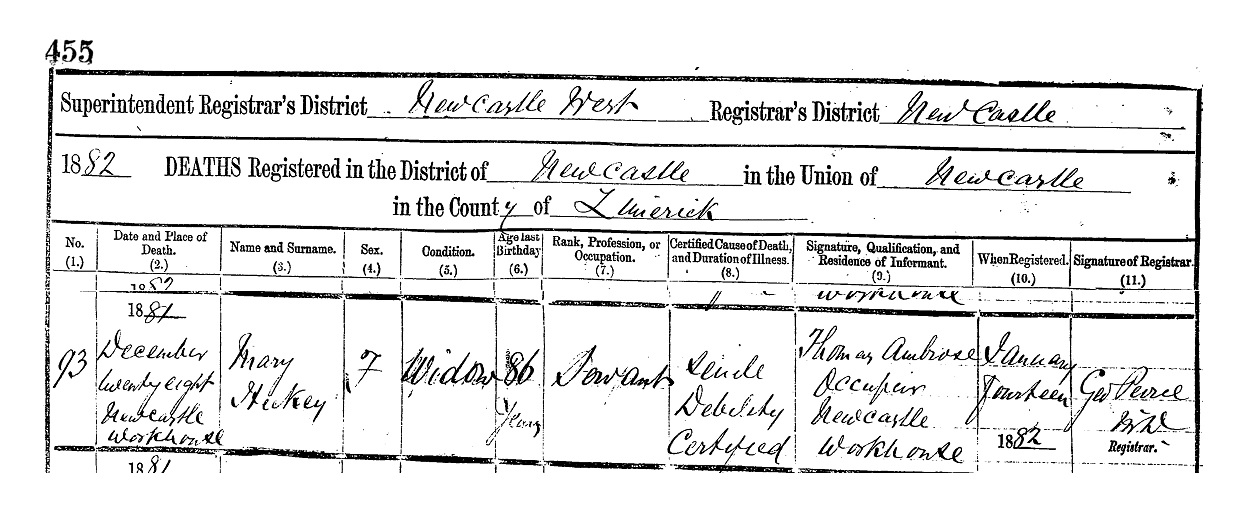 455
Superintendent Registrar's District Newcastle West Registrar's District Newcastle
1882 DEATHS Registered in the District of Newcastle in the Union of Newcastle
in the County of Limerick
No. (1.)
Date and Place of Death. (2.)
Name and Surname. (3.)
Sex. (4.)
Condition. (5.)
Age last Birthday (6.)
Rank, Profession, or Occupation. (7.)
Certified Cause of Death, and Duration of Illness. (8.)
Signature, Qualification, and Residence of Informant. (9.)
When Registered. (10.)
Signature of Registrar. (11.)
1882
workhouse
93
1881
December
twenty eight
Newcastle
workhouse
Mary
Hickey
F
Widow
86
Years
Servant
Senile
Debility
Certified
Thomas Ambrose
Occupier
Newcastle
Workhouse
January
Fourteen
1882
Geo Peirce
Registrar.
1881